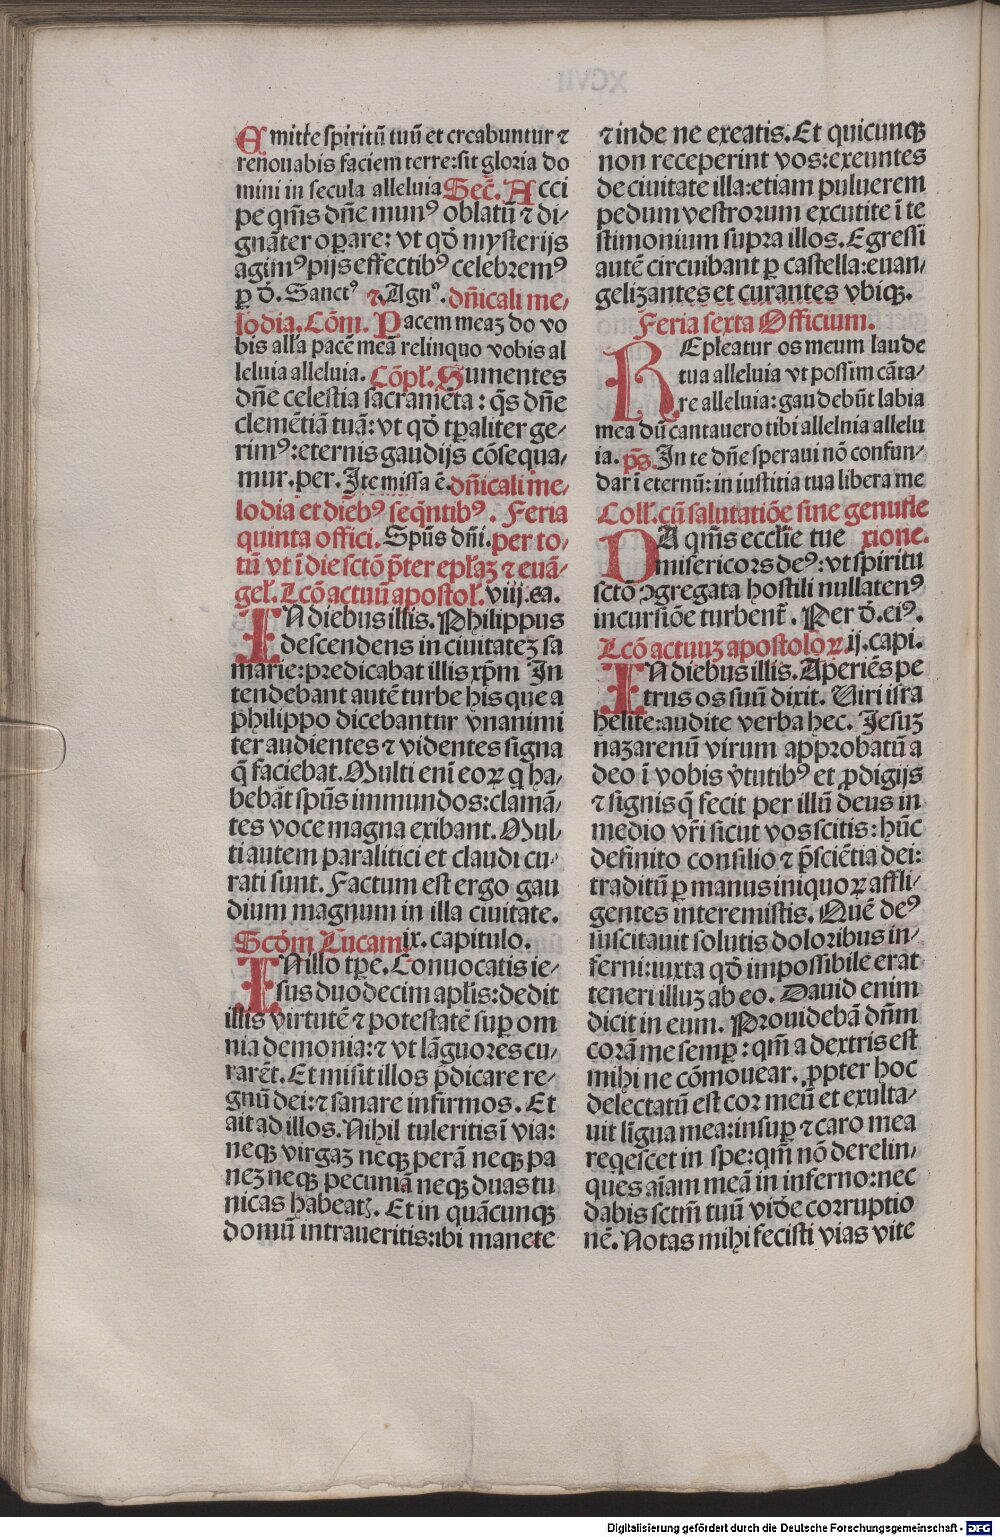 Emitte spiritū tuū et creabuntur ⁊
renouabis faciem terre:sit gloria do
mini in secula alleluia Sec̄. Acci
pe qm̄s dn̄e munꝰ oblatū ⁊ di-
gnāter opare: vt qd̄ mysterijs
agimꝰ pijs effectibꝰ celebremꝰ
ꝑ d̄. Sanctꝰ ⁊ Agnꝰ. dn̄icali me-
lodia. Cōm. Pacem meaꝫ do vo
bis alla pacē meā relinquo vobis al
leluia alleluia. Cōpł. Sumentes
dn̄e celestia sacramēta: q̄s dn̄e
clemētiā tuā: vt qd̄ tꝑaliter ge-
rimꝰ: eternis gaudijs cōsequa-
mur. per. Ite missa ē. dn̄icali me-
lodia et dieb̄ꝰ seq̄ntibꝰ. Feria
quinta offici. Spūs dn̄i. per to-
tū vt ī die sctō p̄ter epłaꝫ ⁊ euā-
geł. Lcō actuū apostoł. viij. ca.
IN diebus illis. Philippus
descendens in ciuitateꝫ sa
marie: predicabat illis xp̄m In
tendebant autē turbe his que a
philippo dicebantur vnanimi
ter audientes ⁊ videntes signa
q̄ faciebat. Multi enī eoꝝ q ha-
bebāt spūs immundos: clamā-
tes voce magna exibant. Mul-
ti autem paralitici et claudi cu-
rati sunt. Factum est ergo gau
dium magnum in illa ciuitate.
Scd̄m Lucam ix. capitulo.
IN illo tꝑe. Conuocatis ie-
sus duodecim apłis: dedit
illis virtutē ⁊ potestatē suꝑ om
nia demonia: ⁊ vt lāguores cu-
rarēt. Et misit illos p̄dicare re-
gnū dei: ⁊ sanare infirmos. Et
ait ad illos. Nihil tuleritis ī via:
neqꝫ virgaꝫ neqꝫ perā neqꝫ pa
neꝫ neqꝫ pecuniā neqꝫ duas tu
nicas habeatꝭ. Et in quācunqꝫ
domū intraueritis: ibi manete
⁊ inde ne exeatis. Et quicunqꝫ
non receperint vos: exeuntes
de ciuitate illa: etiam puluerem
pedum vestrorum excutite ī te
stimonium supra illos. Egressi
autē circuibant ꝑ castella: euan-
gelizantes et curantes vbiqꝫ.
Feria sexta Officium.
REpleatur os meum laude
tua alleluia vt possim cāta-
re alleluia: gaudebūt labia
mea dū cantauero tibi allelnia allelu
ia. p̄s. In te dn̄e speraui nō confun-
dar ī eternū: in iustitia tua libera me
Coll. cū salutatiōe sine genufle
DA qm̄s eccłie tue xione.
misericors deꝰ: vt spiritu
sctō ꝯgregata hostili nullatenꝰ
incursiōe turbent̄. Per d̄. eiꝰ.
Lcō actuuꝫ apostoloꝝ. ij. capi.
IN diebus illis. Aperiēs pe
trus os suū dixit. Viri isra
helite: audite verba hec. Jesuꝫ
nazarenū virum approbatū a
deo ī vobis v̓tutibꝰ et ꝓdigijs
⁊ signis q̄ fecit per illū deus in
medio vr̄i sicut vos scitis: hūc
definito consilio ⁊ p̄sciētia dei:
traditū ꝑ manus iniquoꝝ affli-
gentes interemistis. Quē deꝰ
suscitauit solutis doloribus in-
ferni: iuxta qd̄ impossibile erat
teneri illuꝫ ab eo. Dauid enim
dicit in eum. Prouidebā dn̄m
corā me semꝑ: qm̄ a dextris est
mihi ne cōmouear. ꝓpter hoc
delectatū est cor meū et exulta-
uit līgua mea: insuꝑ ⁊ caro mea
reqescet in spe: qm̄ nō derelin-
ques aīam meā in inferno: nec
dabis sctm̄ tuū vide corruptio
nē. Notas mihi fecisti vias vite
Digitalisierung gefördert durch die Deutsche Forschungsgemeinschaft - DFG